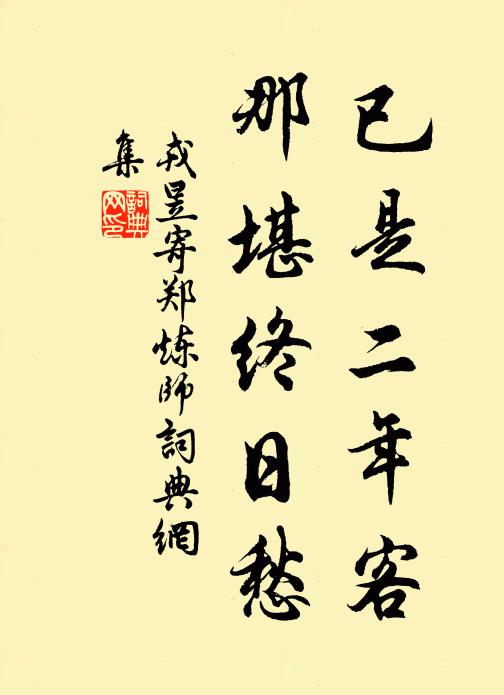 已是二年客
那堪终日愁
戎昱寄郑炼师詞典網
集
詞典網印